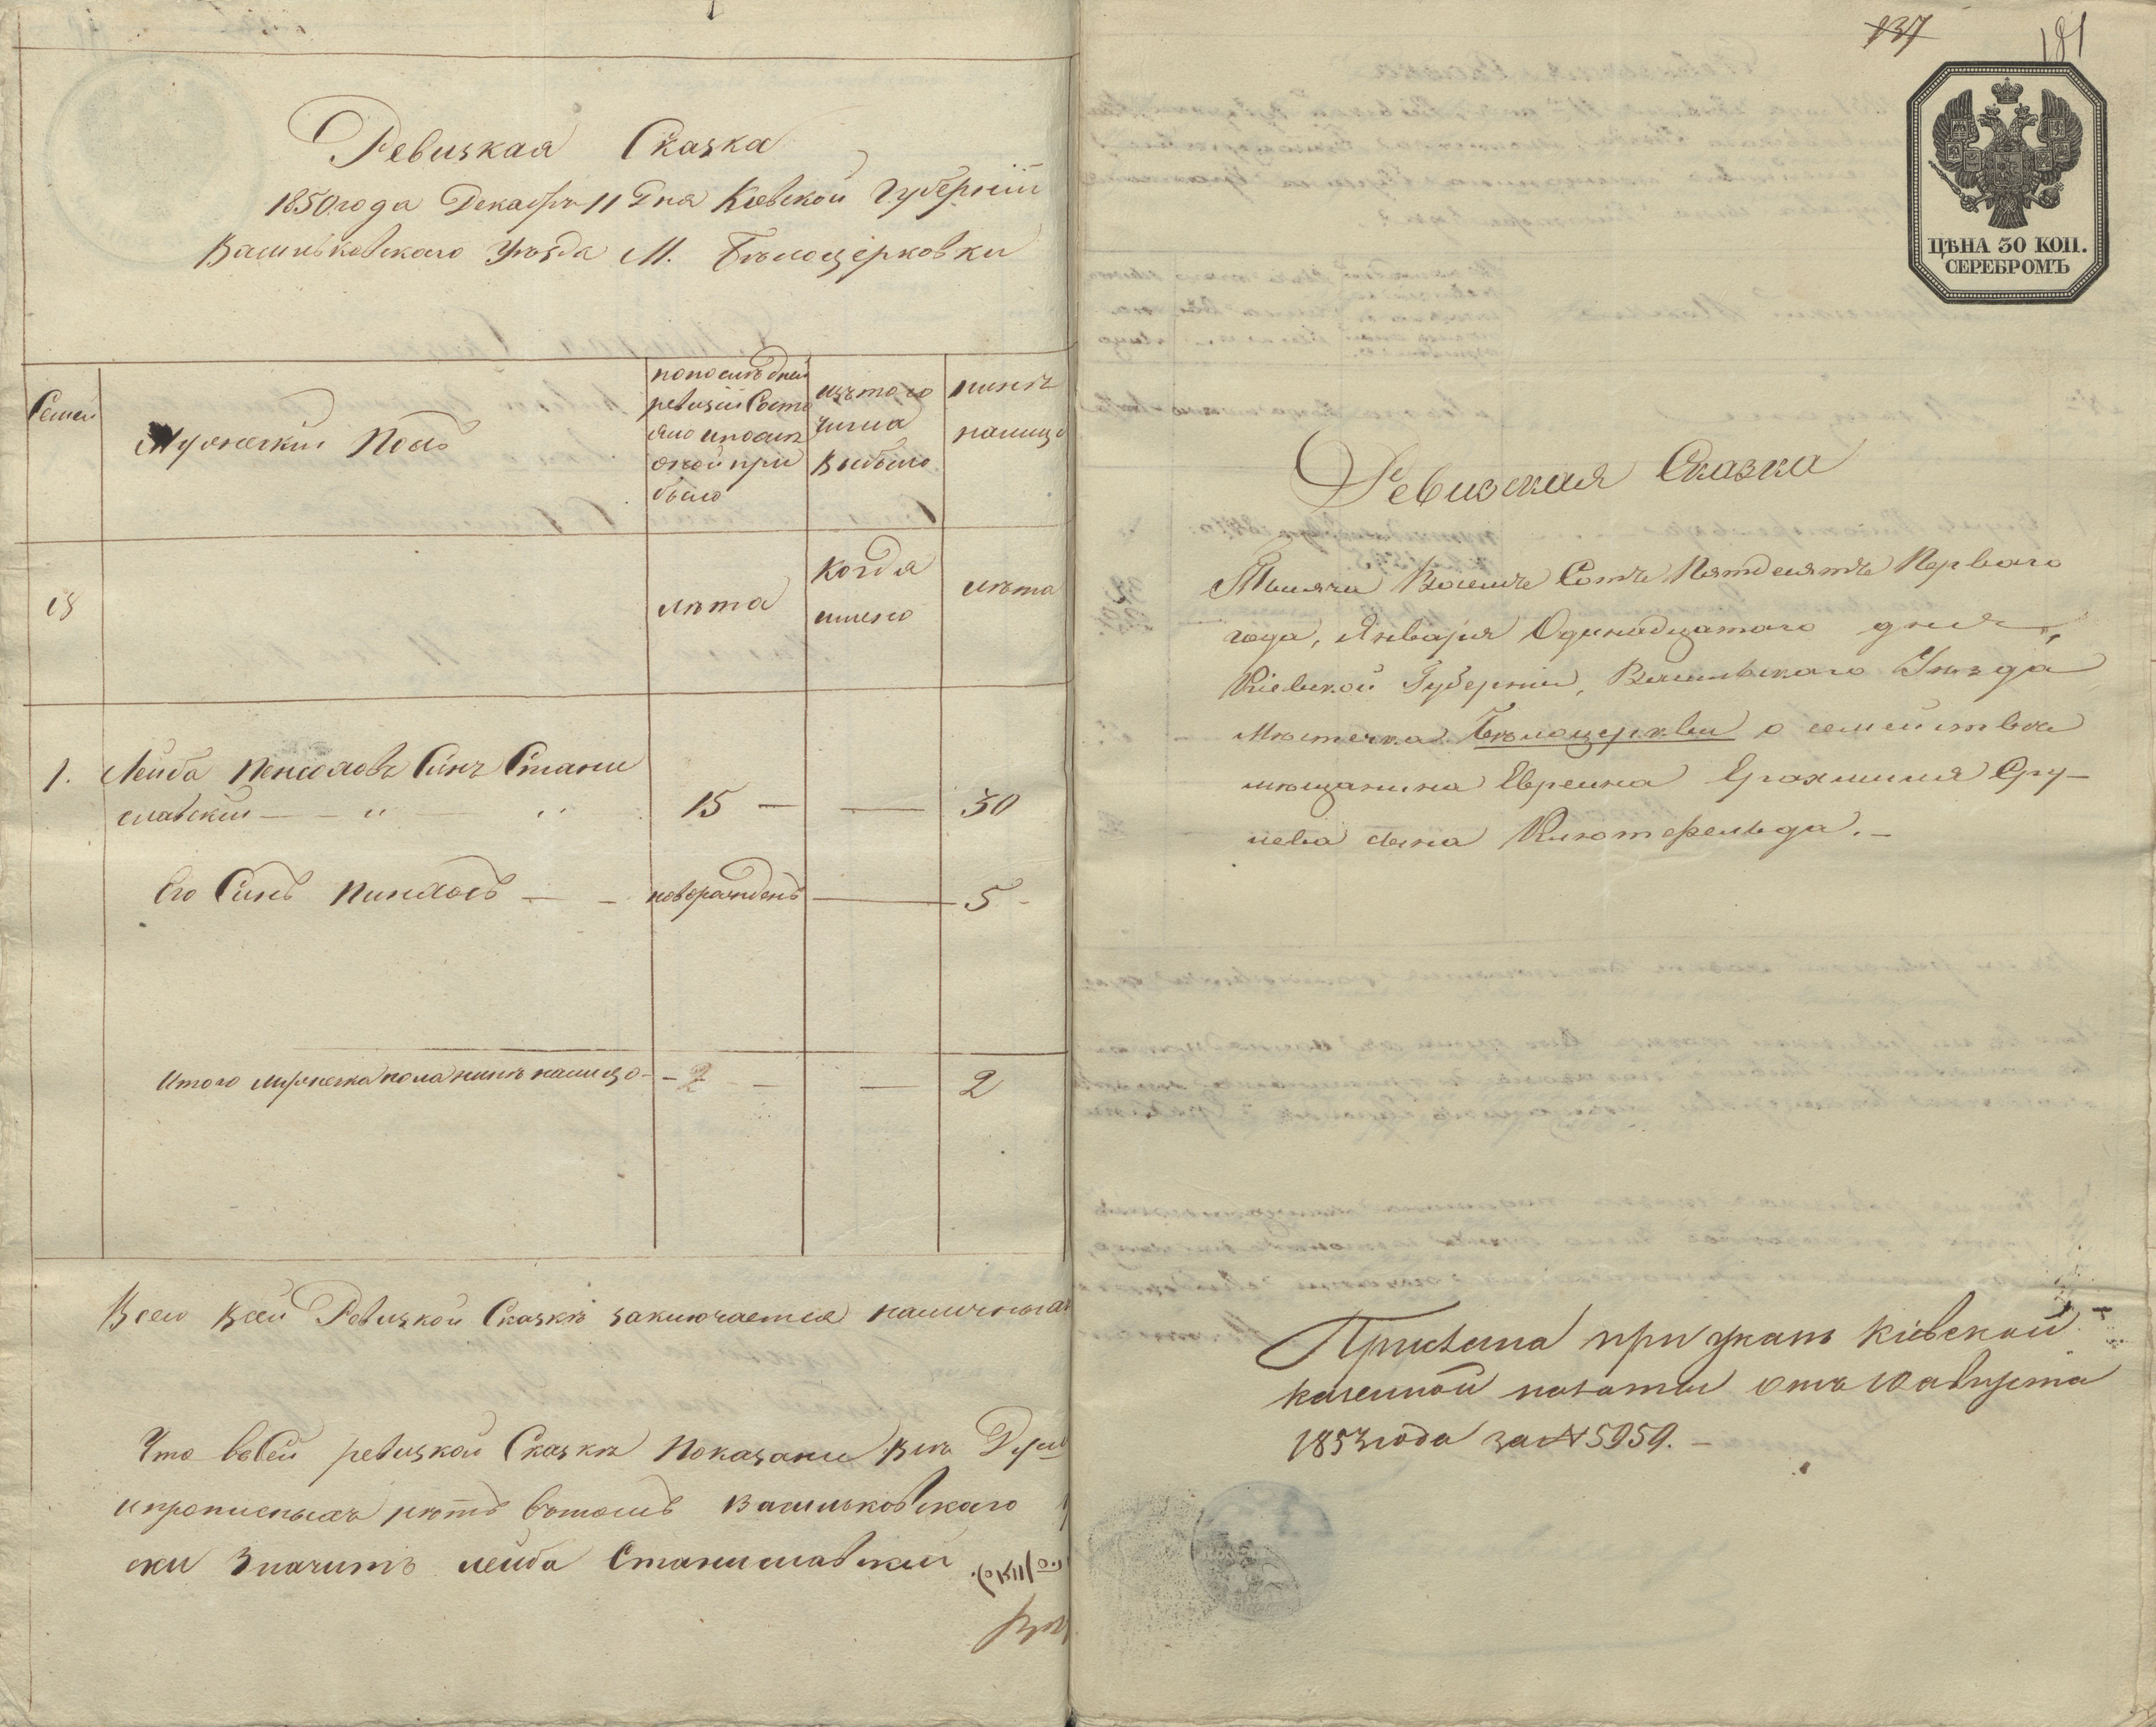 Ревизкая Сказка
1850 года Декабря 11 Дня Киевской Губерніи
Васильковского Уезда М. Белоцерковки
Семьи
Мужескій Полъ
попоследней
ревизіи Состо
яло ипосле
оной при
было
изътого
числа
Выбыло
ныне
налицо
лета
Когда
имено
лета
1. Лейба Пинсоховъ Синъ Стани
славскій — „ — „ 15 — — 30
Его Синъ Пинхосъ — — новорожденъ — 5
Итого мужеска пола ныне налицо — 2 — — 2
Всего Всей Ревизкой Сказке заключается наличныхъ
Что вСей ревизкой Сказке Показани Все Души
ипрописныхъ нетъ вътомъ Васильковского
ски Значитъ лейба Станиславскій
137
181
ЦѢНА 30 КОП.
СЕРЕБРОМЪ
Ревизская Сказка
Тысяча Восемь Сотъ Пятдесятъ Перваго
года, Января Одинадцатаго дня,
Кіевской Губерніи, Васильскаго Уезда
Местечка Белоцеркви о семействе
мещанина Евреина Ерохмиля Сру-
лева сына Клютфельда. —
Прислана при указе Кіевской
казенной палаты отъ 10 августа
1853 года за № 5959. —